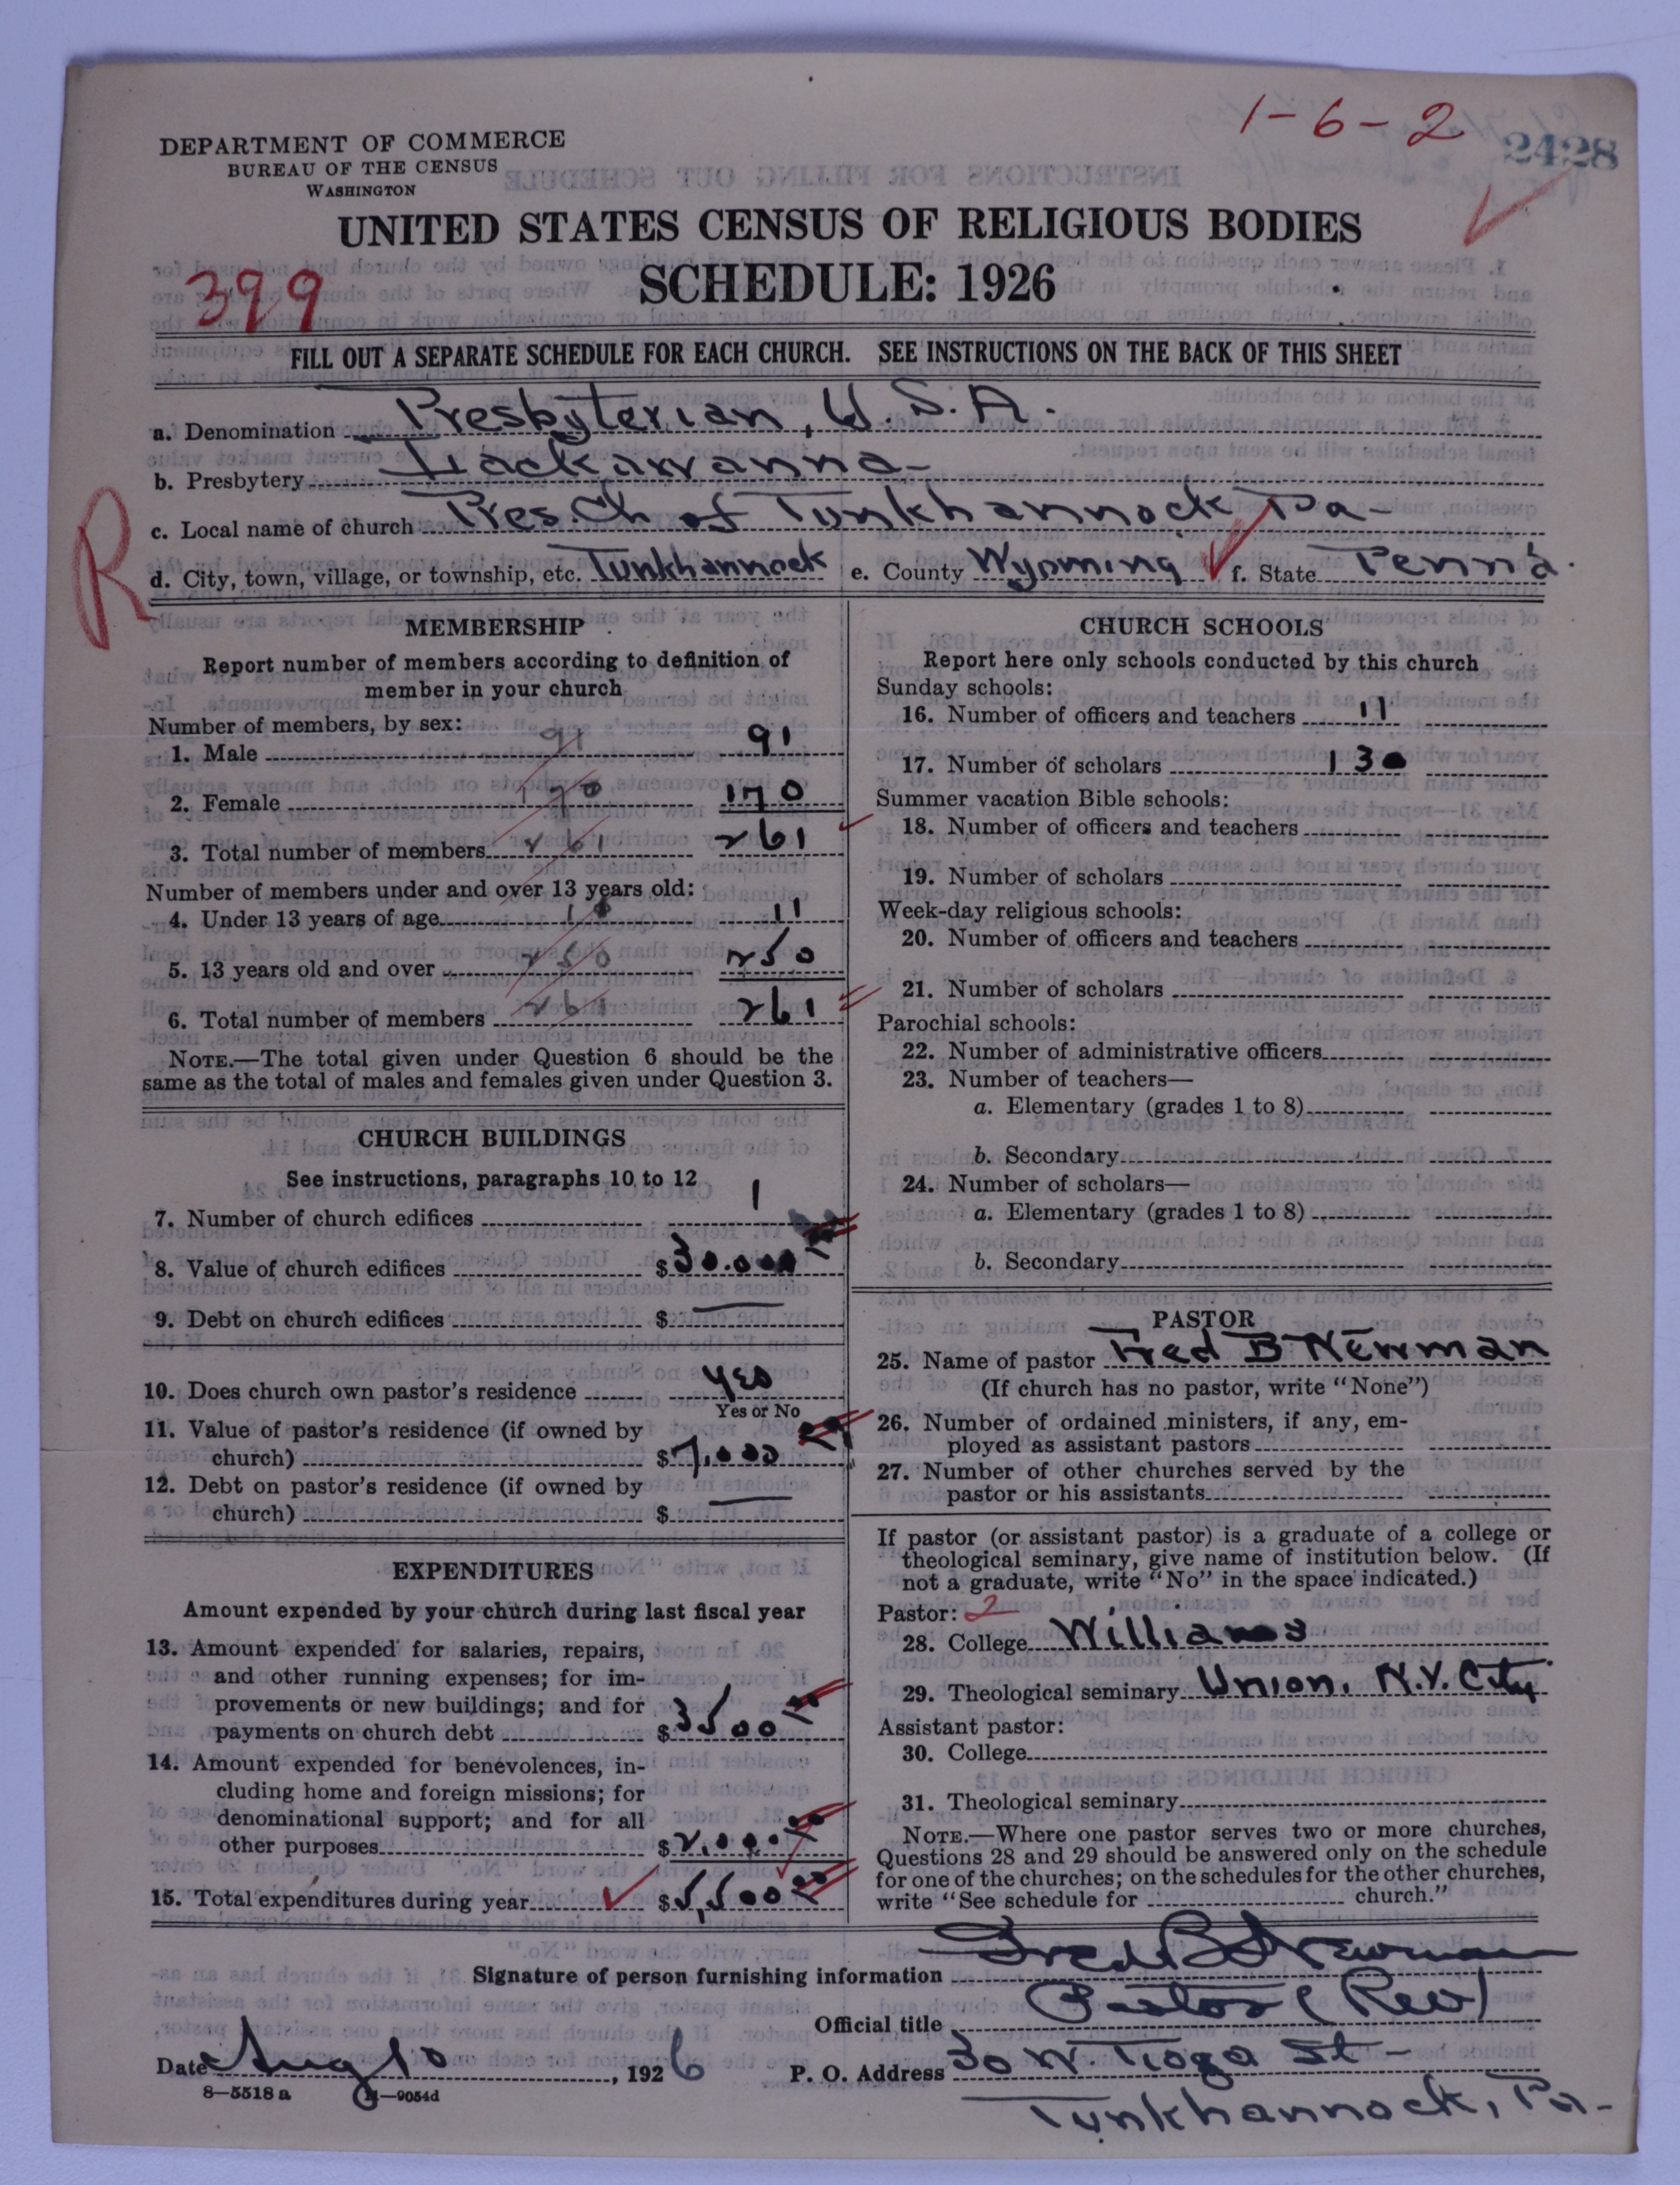 1-6-2
2428
DEPARTMENT OF COMMERCE
BUREAU OF THE CENSUS
WASHINGTON
UNITED STATES CENSUS OF RELIGIOUS BODIES
399
SCHEDULE: 1926
FILL OUT A SEPARATE SCHEDULE FOR EACH CHURCH. SEE INSTRUCTIONS ON THE BACK OF THIS SHEET
a. Denomination Presbyterian, U.S.A.
b. Presbytery Lackawanna
R
c. Local name of church Pres. Ch of Tunkhannock Pa-
d. City, town, village, or township, etc. Tunkhannock e. County Wyoming f. State Penn'a.
MEMBERSHIP
Report number of members according to definition of
member in your church
Number of members, by sex:
1. Male 91 91
2. Female 170 170
3. Total number of members 261 261
Number of members under and over 13 years old:
4. Under 13 years of age 11
5. 13 years old and over 250 250
6. Total number of members 261 261
NOTE.—The total given under Question 6 should be the
same as the total of males and females given under Question 3.
CHURCH BUILDINGS
See instructions, paragraphs 10 to 12
7. Number of church edifices 1
8. Value of church edifices $30.000
9. Debt on church edifices $ —
10. Does church own pastor's residence yes
Yes or No
11. Value of pastor's residence (if owned by
church) $7,000
12. Debt on pastor's residence (if owned by
church) $ —
EXPENDITURES
Amount expended by your church during last fiscal year
13. Amount expended for salaries, repairs,
and other running expenses; for im-
provements or new buildings; and for
payments on church debt $3500
14. Amount expended for benevolences, in-
cluding home and foreign missions; for
denominational support; and for all
other purposes $2,000
15. Total expenditures during year $5,500
CHURCH SCHOOLS
Report here only schools conducted by this church
Sunday schools:
16. Number of officers and teachers 11
17. Number of scholars 130
Summer vacation Bible schools:
18. Number of officers and teachers
19. Number of scholars
Week-day religious schools:
20. Number of officers and teachers
21. Number of scholars
Parochial schools:
22. Number of administrative officers
23. Number of teachers—
a. Elementary (grades 1 to 8)
b. Secondary
24. Number of scholars—
a. Elementary (grades 1 to 8)
b. Secondary
PASTOR
25. Name of pastor Fred B Newman
(If church has no pastor, write "None")
26. Number of ordained ministers, if any, em-
ployed as assistant pastors
27. Number of other churches served by the
pastor or his assistants
If pastor (or assistant pastor) is a graduate of a college or
theological seminary, give name of institution below. (If
not a graduate, write "No" in the space indicated.)
Pastor: 2
28. College Williams
29. Theological seminary Union, N.Y. City
Assistant pastor:
30. College
31. Theological seminary
NOTE.—Where one pastor serves two or more churches,
Questions 28 and 29 should be answered only on the schedule
for one of the churches; on the schedules for the other churches,
write "See schedule for church."
Signature of person furnishing information Fred B Newman
Official title Pastor (Rev)
Date Aug 10, 1926 P. O. Address 30 W. Tioga St-
8—5518 a 11—9054d
Tunkhannock, Pa-